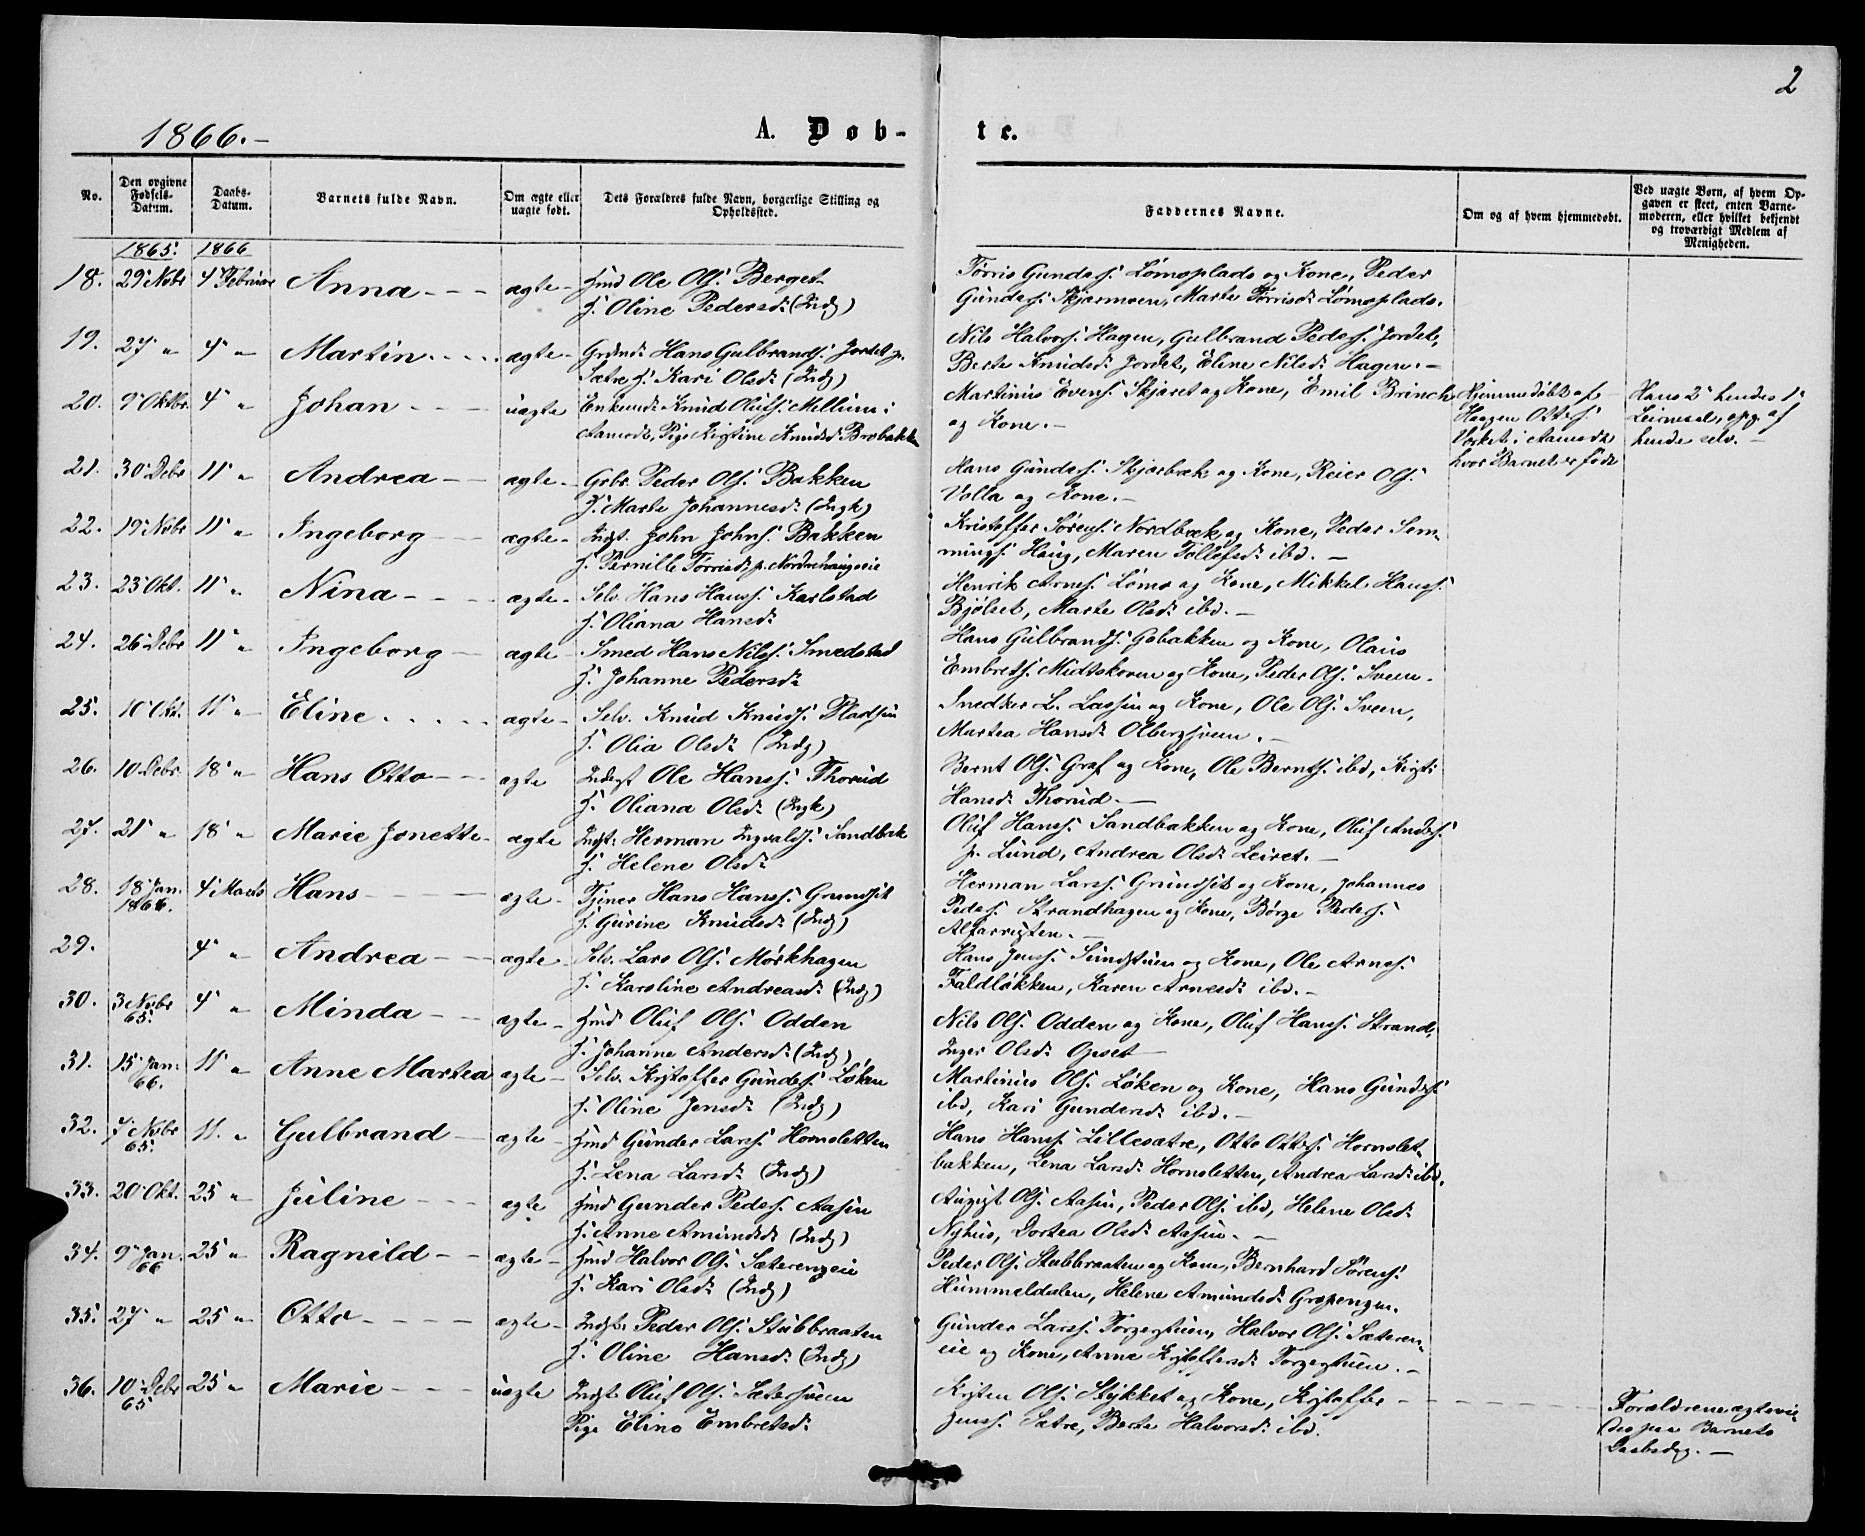 2
1866.-
A. Døb-
te.
No.
Den opgivne Fødsels-Datum.
Daabs-Datum.
Barnets fulde Navn.
Om ægte eller uægte født.
Dets Forældres fulde Navn, borgerlige Stilling og Opholdssted.
Faddernes Navne.
Om og af hvem hjemmedøbt.
Ved uægte Børn, af hvem Opgaven er skeet, enten Barnemoderen, eller hvilket bekjendt og troværdigt Medlem af Menigheden.
1865. 1866
18. 29 Nobr 4 Februar Anna - - - ægte - Hmd Ole Ols. Berget
H. Oline Pedersd. (Indg)
Tørris Gunders. Lømoplads og Kone, Peder
Gunders. Skjærmoen, Marte Tørrisd. Lømoplads.
19. 27 " 4 " Martin . . . . ægte - Grdmd. Hans Gulbrands. Jordet p.
Sætre H. Kari Olsd. (Indg)
Nils Halvors. Hagen, Gulbrand Peders. Jordet,
Berte Knudsd. Jordet, Eline Nilsd. Hagen. -
20. 9 Oktbr. 4 " Johan - - - uægte Enkemd. Knud Olufs. Mellum i
Aamodt, Pige Kristine Knudsd. Brobakken
Martinus Evens. Skjæret og Kone, Emil Brinch
og Kone. -
Hjemmedøbt af
Haagen Ottes.
i Aamodt
hvor Barnet er født
Hans 2. hendes 1.
Leierm., opg. af
hende selv. -
21. 30 Debr 11 " Andrea - - ægte - Grbr. Peder Ols. Bakken
H. Marte Johannesd. (Ingk)
Hans Gunders. Skjærbæk og Kone, Reier Ols.
Volla og Kone. -
22. 19 Nobr 11 " Ingeborg - - ægte - Indst. John Johns. Bakken
H. Pernille Tørrisd. p. Nordrehaugeeie
Kristoffer Sørens. Nordbæk og Kone, Peder Sem-
mings. Haug, Maren Tollefsd. ibd. -
23. 23 Okt. 11 " Nina - - - ægte - Selv. Hans Hanss. Karlstad
H. Oliana Hansd.
Henrik Arnes. Lømo og Kone, Mikkel Hanss.
Bjølset, Marte Olsd. ibd. -
24. 26 Debr 11 " Ingeborg - ægte - Smed Hans Nilss. Smedstad
H. Johanne Pedersd.
Hans Gulbrands. Gobakken og Kone, Olaus
Embrets. Midtskoven og Kone, Peder Ols. Sveen.
25. 10 Okt. 11 " Eline . . . . . ægte - Selv. Knud Knuds. Pladsen
H. Olia Olsd. (Indg)
Snedker L. Lassen og Kone, Ole Ols. Sveen,
Martea Hansd. Olbergsveen. -
26. 10 Debr. 18 " Hans Otto - - ægte Indst Ole Hanss. Thorud
H. Oliana Olsd. (Ingk)
Bernt Ols. Graf og Kone, Ole Bernts. ibd, Kristi
Hansd. Thorud. -
27. 21 " 18 " Marie Jonette - ægte Indst. Herman Ingvalds. Sandbak
H. Helene Olsd.
Oluf Hanss. Sandbakken og Kone, Oluf Anders.
p. Lund, Andrea Olsd. Leiret. -
28. 18 Jan. 1866. 4 Marts Hans - - - ægte - Tjener Hans Hanss. Grundset
H. Gurine Knudsd. (Indg)
Herman Larss. Grundset og Kone, Johannes
Peders. Strandhagen og Kone, Børge Peders.
29. 4 " Andrea - - ægte - Selv. Lars Ols. Mørkhagen
H. Karoline Andreasd. (Indg)
Hans Jenss. Sundstuen og Kone, Ole Arnes.
Faldløkken, Karen Arnesd. ibd. -
30. 3 Nobr 65. 4 " Minda - - ægte - Hmd Oluf Ols. Odden
H. Johanne Andersd. (Indg)
Nils Ols. Odden og Kone, Oluf Hanss. Strand,
Inger Olsd. Opset
31. 15 Jan. 66. 11 " Anne Martea ægte - Selv. Kristoffer Gunders. Løken
H. Oline Jensd. (Indg)
Martinus Ols. Løken og Kone, Hans Gunders.
ibd, Kari Gundersd. ibd. -
32. 7 Nobr 65. 11. " Gulbrand - ægte - Hmd Gunder Larss. Hornsletten
H. Lena Larsd. (Indg)
Hans Hanss. Lillesætre, Otto Ottess. Hornslet-
bakken, Lena Larsd. Hornsletten, Andrea Larsd. ibd.
33. 20 Okt. 25 " Juline - - - ægte Hmd Gunder Peders. Aasen
H. Anne Amundsd. (Indg)
August Ols. Aasen, Peder Ols. ibd, Helene Olsd.
Nyhus, Dortea Olsd. Aasen. -
34. 9 Jan. 66 25 " Ragnild - - ægte - Hmd Halvor Ols. Sæterengeie
H. Kari Olsd. (Indg)
Peder Ols. Stubbraaten og Kone, Bernhard Sørens.
Hummeldalen, Helene Amundsd. Gropengen.
35. 27 " 25 " Otto - - - - ægte - Indst. Peder Ols. Stubbraaten
H. Oline Hansd. (Indg)
Gunder Larss. Torgerstuen, Halvor Ols. Sæteren-
eie og Kone, Anne Kristoffersd. Torgerstuen. -
36. 10 Debr 65 25 " Marie - - - uægte Indst. Oluf Ols. Sætersveen
Pige Eline Embretsd.
Kristen Ols. Stykket og Kone, Kristoffer
Jenss. Sætre, Berte Halvorsd. ibd.
Forældrene ægtevie-
des paa Barnets
Daabsdag. -